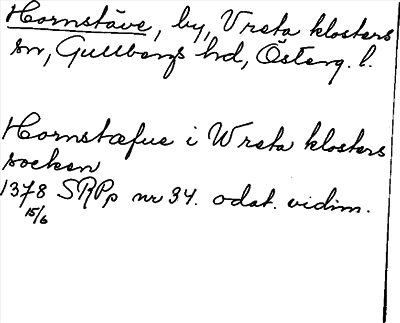 Hornstäve, by, Vreta klosters
sn, Gullbergs hd, Österg. l.
Hornstæfue i Wreta klosters
socken
1378 SRPp nr 34. odat. vidim.
15/6